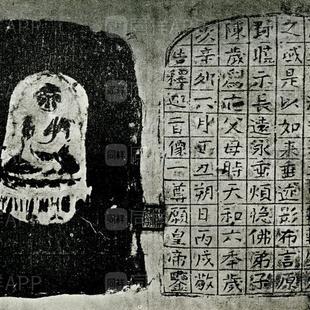 之或是以如来垂迹影布言源
示長遠永垂煩惱佛弟子
陳歲為父母時天和六年歲
次辛卯六月丑朔日丙戌敬
造釋迦石像一尊願皇帝